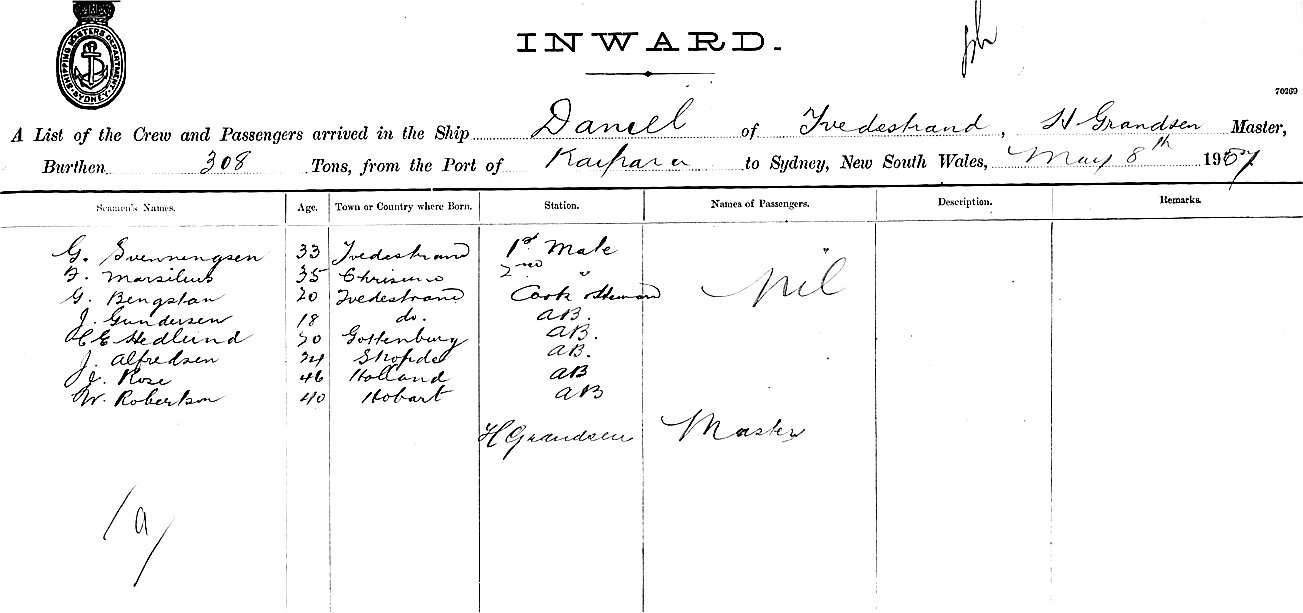 SHIPPING MASTERS DEPARTMENT
SYDNEY
INWARD.
70269
A List of the Crew and Passengers arrived in the Ship Daniel of Tvedestrand, H Grandsen Master,
Burthen 308 Tons, from the Port of Kaipara to Sydney, New South Wales, May 8th 1907
Seamen's Names. Age. Town or Country where Born. Station. Names of Passengers. Description. Remarks.
G. Svenningsen 33 Tvedestrand 1st Mate
F. Marsilius 35 2nd "
G. Bengstan 20 Tvedestrand Cook Steward nil
J. Gundersen 18 do. AB.
C E Hedlund 30 Gottenburg AB.
J. Alfredsen 24 AB.
J. Rose 46 Holland AB
W. Robertson 40 Hobart AB
H Grandsen Master